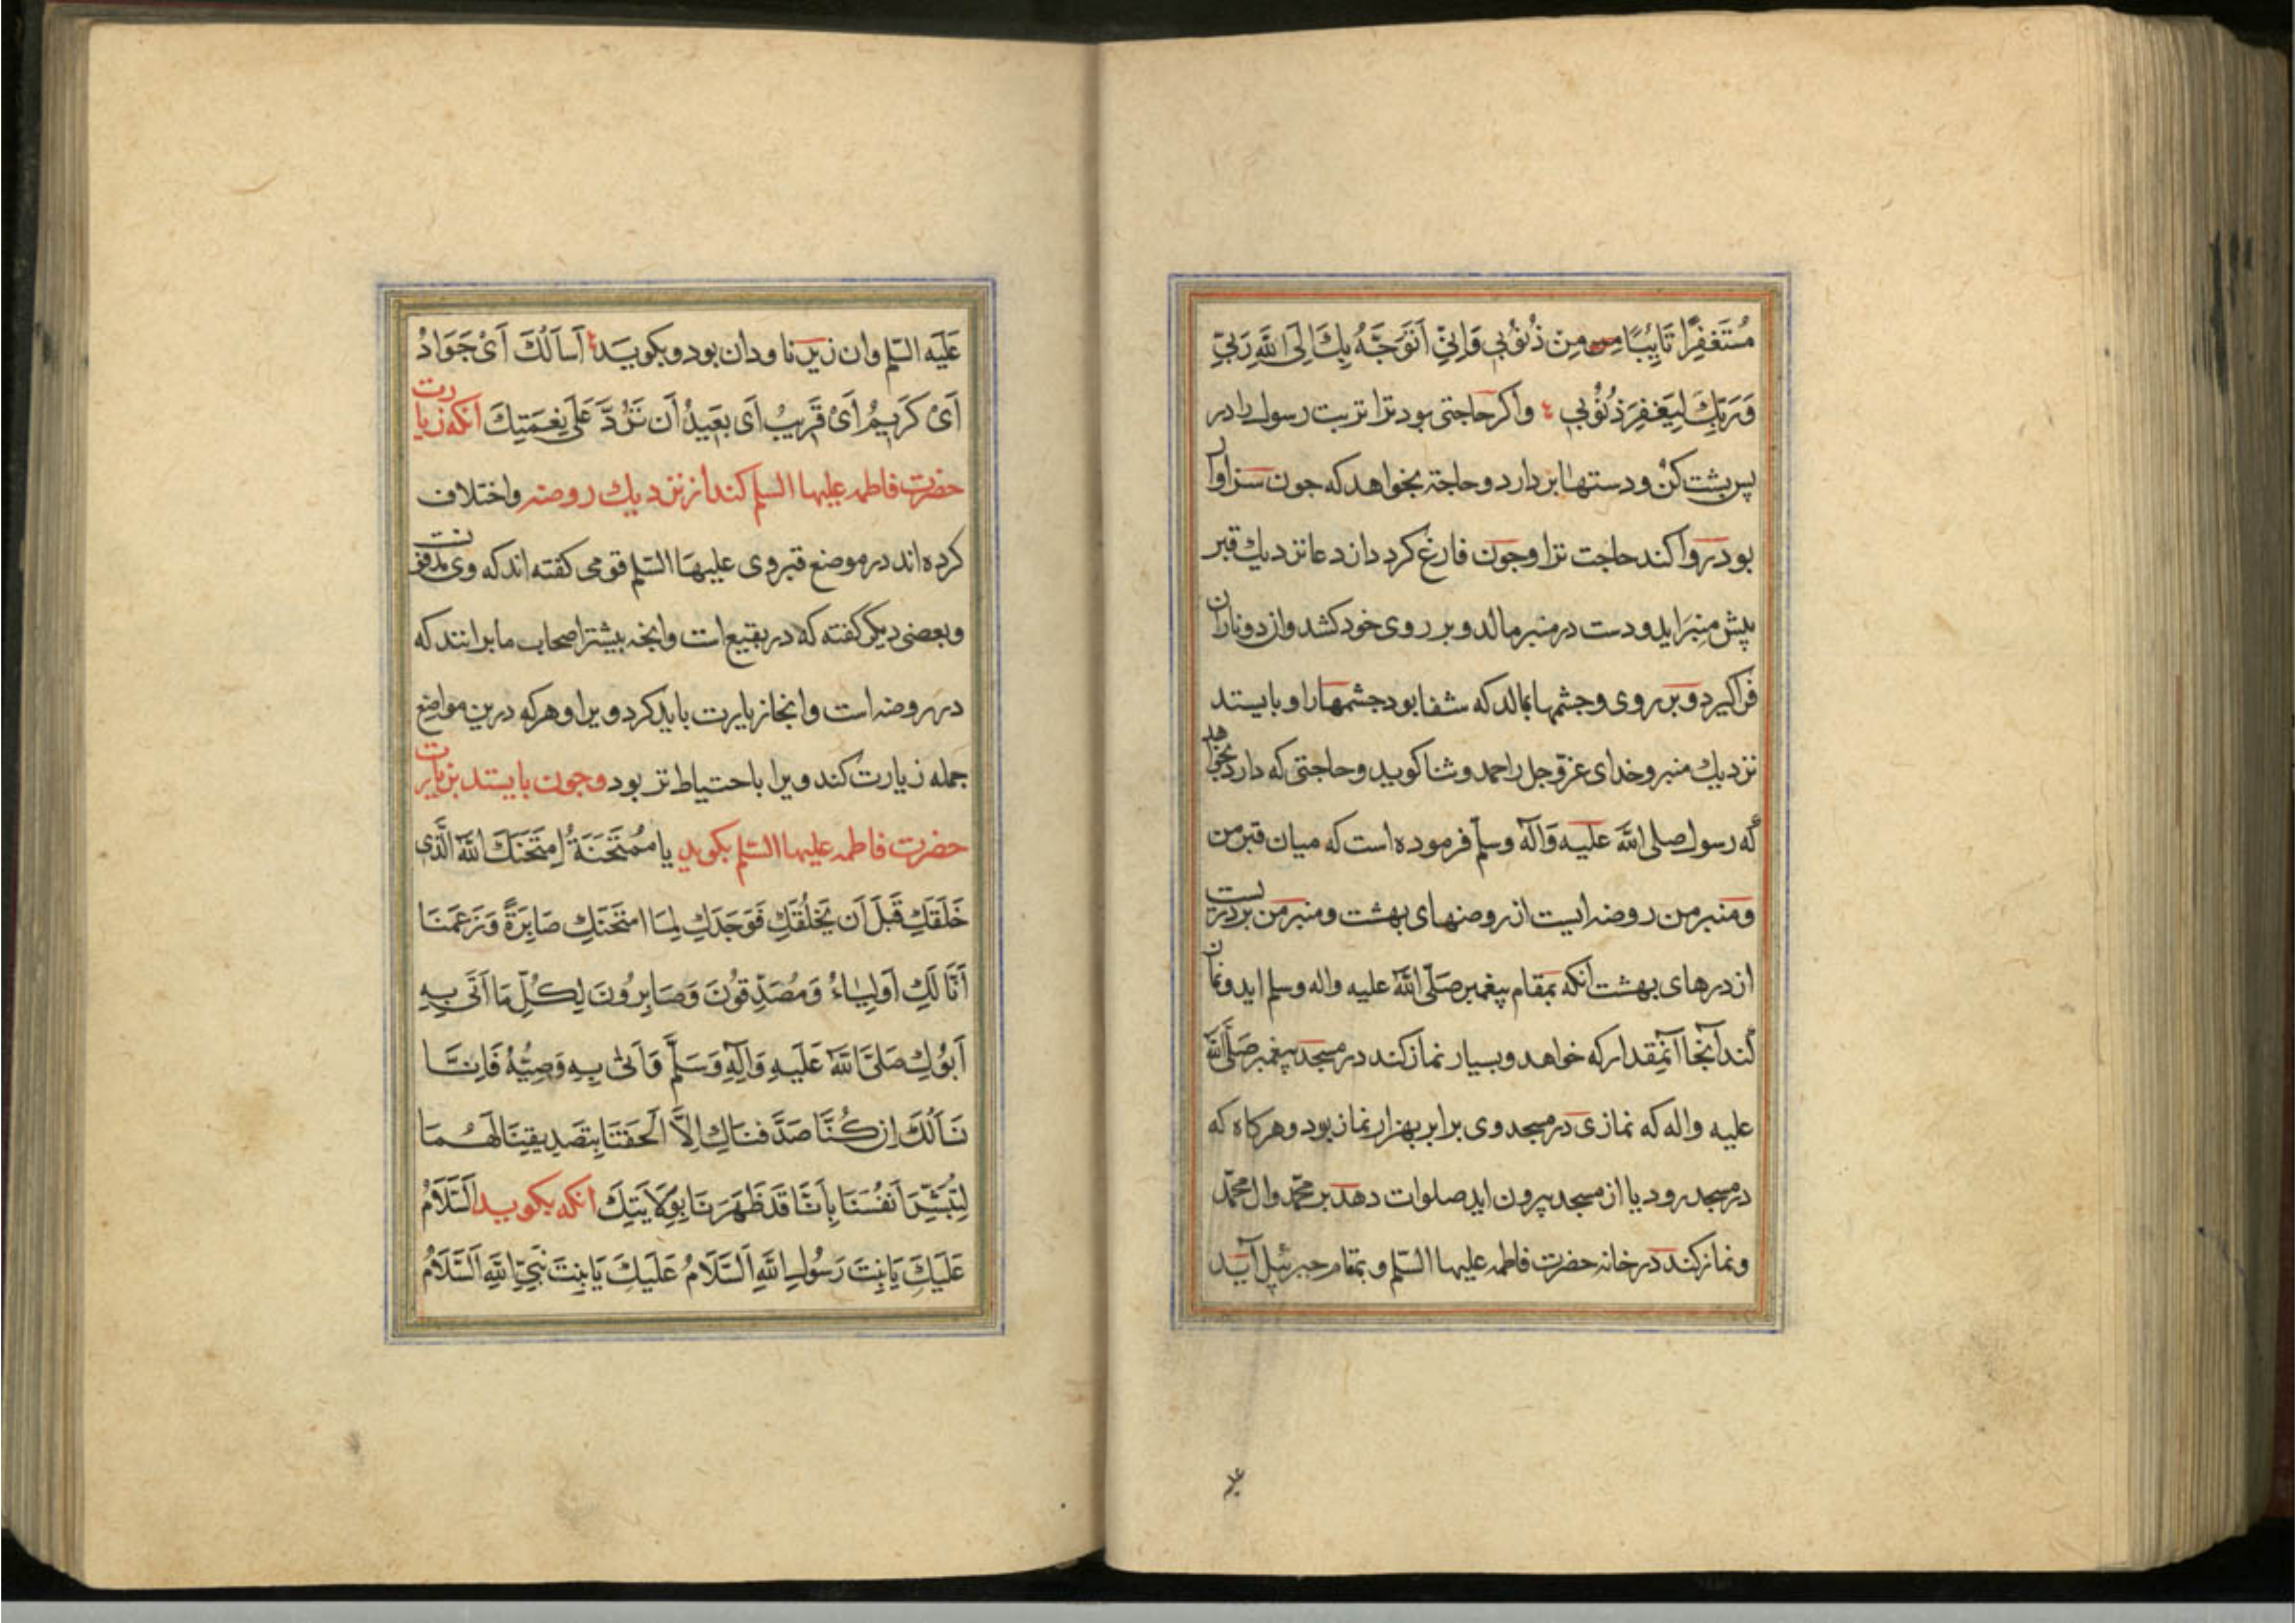 مُسْتَغْفِرًا تَايِبًا مِنْ ذُنُوبِي وَاِنِّي اَتَوَجَّهُ بِكَ اِلَى اللَّهِ رَبِّي
وَرَبِّكَ لِيَغْفِرَ ذُنُوْبِي واكر حاجتى بود ترا تربت رسول را در
پس پشت كن ودستها بردارد وحاجة بخواهد كه جون سزاوار
بود روا كند حاجت ترا وجون فارغ كردد از دعا نزديك قبر
پيش منبر ايد ودست در منبر مالد وبر روى خود كشد واز دو نار ان
فراكيرد وبر روى وجشمها بمالد كه شفا بود جشمها را وبايستد
نزديك منبر وخداى عزّ وجل را حمد وثنا كويد وحاجتى كه دارد بخواهد
كه رسول صلى اللَّه عليه وَآله وسلم فرموده است كه ميان قبر من
ومنبر من روضه ايست از روضهاى بهشت ومنبر من بر دريست
از درهاى بهشت آنكه بمقام پيغمبر صَلَّى اللَّه عليه واله وسلم ايد ونماز
كند آنجا آنمقدار كه خواهد وبسيار نماز كند در مسجد پيغمبر صَلَّى اللَّه
عليه واله كه نمازى در مسجد وى برابر بهزار نماز بود وهركاه كه
در مسجد رود يا از مسجد بيرون ايد صلوات دهد بر محمّد وال محمّد
ونماز كند در خانه حضرت فاطمه عليها السّلم وبمقام جبرئيل آيد
عَلَيه السّلم وان زير ناودان بود وبكويد اَسْاَلُكَ اَىْ جَوَادُ
اَىْ كَرِيمُ اَىْ قَرِيبُ اَى بَعِيدُ اَن تَرُدَّ عَلَىَّ نِعْمَتِكَ آنكه زيارت
حضرت فاطمه عليها السلم كند از نزديك روضه واختلاف
كرده اند در موضع قبر وى عليهَا السّلم قومى كفته اند كه وى مدفونست
وبعضى ديكر كفته كه در بقيع است وانچه بيشتر اصحاب ما برانند كه
در روضه است وانجا زيارت بايد كرد ويرا وهركه درين مواضع
جمله زيارت كند ويرا با احتياط تر بود وجون بايستد بزيارت
حضرت فاطمه عليها السّلم بكويد يا مُمْتَحَنَةُ اِمْتَحَنَكَ اللَّه الَّذى
خَلَقَكِ قَبْلَ اَن يَخْلُقَكِ فَوَجَدَكِ لِمَا امْتَحَنَكِ صَابِرَةً وَزَعَمْنَا
اَنَّا لَكِ اَوْلِيَاءُ وَمُصَدِّقُونَ وَصَابِرُونَ لِكُلِّ مَا اَتَى بِهِ
اَبُوكِ صَلَّى اللَّهُ عَلَيهِ وَآلِهِ وَسَلَّم وَاَتَى بِهِ وَصِيُّهُ فَاِنَّا
نَسْاَلُكَ اِن كُنَّا صَدَّقْنَاكِ اِلَّا اَلْحَقْتِنَا بِتَصْدِيقِنَا لَهُمَا
لِنُبَشِّرَ اَنْفُسَنَا بِاَنَّا قَدْ طَهُرْنَا بِوَلَايَتِكَ آنكه بكويد اَلسَّلَامُ
عَلَيكَ يَا بِنْتَ رَسُولِ اللَّهِ اَلسَّلَامُ عَلَيكَ يَا بِنْتَ نَبِيِّ اللَّهِ اَلسَّلَامُ